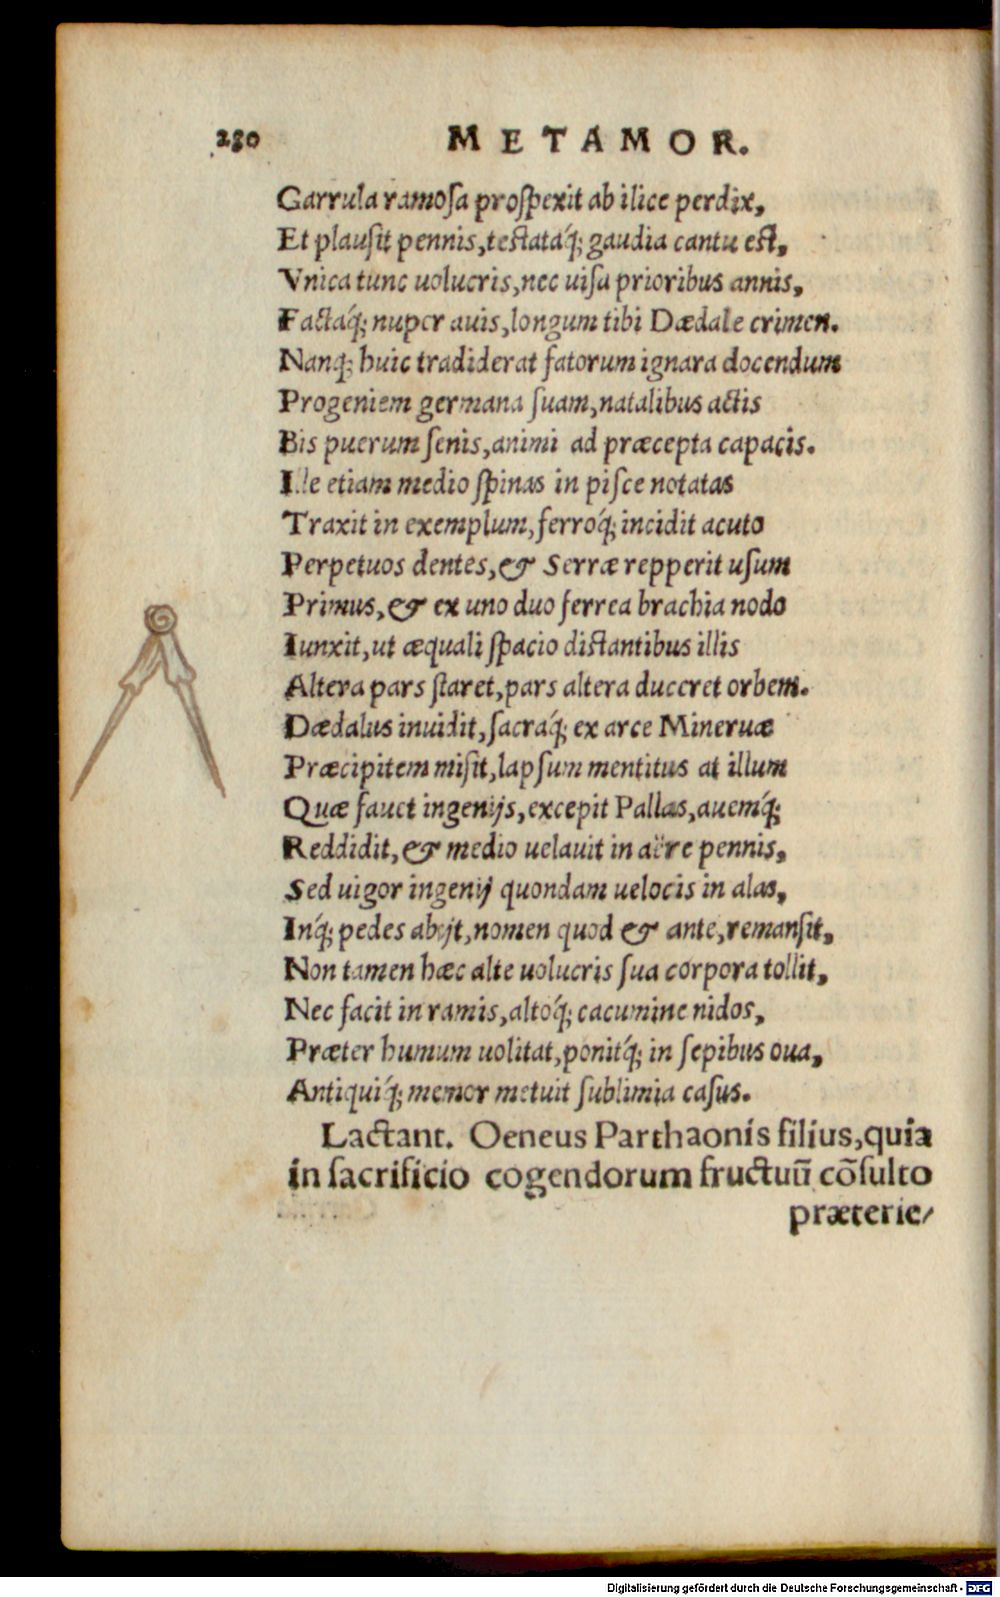 280 METAMOR.
Garrula ramosa prospexit ab ilice perdix,
Et plausit pennis, testataq́; gaudia cantu est,
Vnica tunc uolucris, nec uisa prioribus annis,
Factaq́; nuper auis, longum tibi Dædale crimen.
Nanq; huic tradiderat fatorum ignara docendum
Progeniem germana suam, natalibus actis
Bis puerum senis, animi ad præcepta capacis.
Ille etiam medio spinas in pisce notatas
Traxit in exemplum, ferroq́; incidit acuto
Perpetuos dentes, & Serræ repperit usum
Primus, & ex uno duo ferrea brachia nodo
Iunxit, ut æquali spacio distantibus illis
Altera pars staret, pars altera duceret orbem.
Dædalus inuidit, sacraq́; ex arce Mineruæ
Præcipitem misit, lapsum mentitus at illum
Quæ fauet ingenijs, excepit Pallas, auemq́;
Reddidit, & medio uelauit in aëre pennis,
Sed uigor ingenij quondam uelocis in alas,
Inq́; pedes abijt, nomen quod & ante, remansit,
Non tamen hæc alte uolucris sua corpora tollit,
Nec facit in ramis, altoq́; cacumine nidos,
Præter humum uolitat, ponitq́; in sepibus oua,
Antiquiq́; memor metuit sublimia casus.
Lactant. Oeneus Parthaonis filius, quia
in sacrificio cogendorum fructuū cōsulto
præterie/
Digitalisierung gefördert durch die Deutsche Forschungsgemeinschaft - DFG